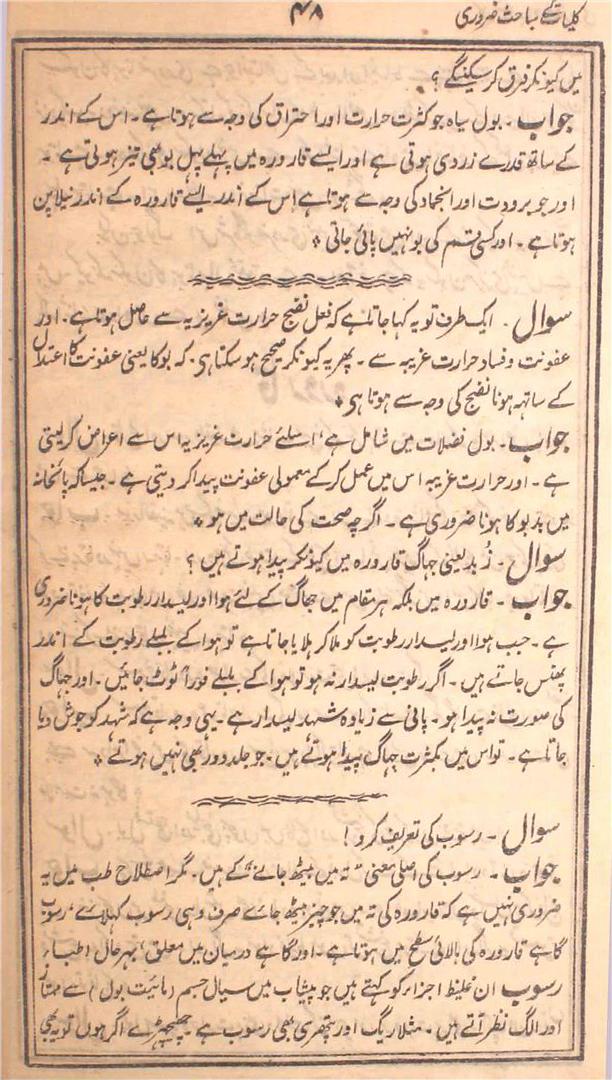 کلیات کے مباحث ضروری ۴۸
میں کیونکر فرق کر سکینگے ؟
جواب ۔ بول سیاہ جو کثرت حرارت اور احتراق کی وجہ سے ہوتا ہے ۔ اس کے اندر
کے ساتھ قدرے زردی ہوتی ہے اور ایسے قارورہ میں پہلے پہل بو بھی تیز ہوتی ہے ۔
اور جو برودت اور انجماد کی وجہ سے ہوتا ہے اس کے اندر ایسے قارورہ کے اندر نیلا پن
ہوتا ہے ۔ اور کسی قسم کی بو نہیں پائی جاتی ٭
سوال ۔ ایک طرف تو یہ کہا جاتا ہے کہ فعل نضج حرارت غریزیہ سے حاصل ہوتا ہے ۔ اور
عفونت و فساد حرارت غریبہ سے ۔ پھر یہ کیونکر صحیح ہو سکتا ہی کہ بو کا یعنی عفونت کا اعتدال
کے ساتہہ ہونا نضج کی وجہ سے ہوتا ہی ٭
جواب ۔ بول فضلات میں شامل ہے ، اسلئے حرارت غریزیہ اس سے اعراض کر لیتی
ہے ۔ اور حرارت غریبہ اس میں عمل کر کے معمولی عفونت پیدا کر دیتی ہے ۔ جیسا کہ پائخانہ
میں بدبو کا ہونا ضروری ہے ۔ اگرچہ صحت کی حالت میں ہو ٭
سوال ۔ زُبد یعنی جہاگ قارورہ میں کیونکر پیدا ہوتے ہیں ؟
جواب ۔ قارورہ میں بلکہ ہر مقام میں جھاگ کے لئے ہوا اور لیسدار رطوبت کا ہونا ضروری
ہے ۔ جب ہوا اور لیسدار رطوبت کو ملا کر ہلایا جاتا ہے تو ہوا کے بلبلے رطوبت کے اندر
پھنس جاتے ہیں ۔ اگر رطوبت لیسدار نہ ہو تو ہوا کے بلبلے فوراً ٹوٹ جائیں ۔ اور جہاگ
کی صورت نہ پیدا ہو ۔ پانی سے زیادہ شہد لیسدار ہے ۔ یہی وجہ ہے کہ شہد کو جوش دیا
جاتا ہے ۔ تو اس میں بکثرت جہاگ پیدا ہوتے ہیں ۔ جو جلد دور بھی نہیں ہوتے ٭
سوال ۔ رسوب کی تعریف کرو !
جواب ۔ رسوب کی اصلی معنی "تہ میں بیٹھ جانے" کے ہیں ۔ مگر اصطلاح طب میں یہ
ضروری نہیں ہے کہ قارورہ کی تہ میں جو چیز بیٹھ جائے صرف وہی رسوب کہلائے ، رسوب
گاہے قارورہ کی بالائی سطح میں ہوتا ہے ۔ اور گاہے درمیان میں معلق ، بہر حال اطباء
رسوب ان غلیظ اجزاء کو کہتے ہیں جو پیشاب میں سیال جسم (مائیت بول) سے ممتاز
اور الگ نظر آتے ہیں ۔ مثلا ریگ اور پتھری بھی رسوب ہے ۔ چھیچھڑے اگر ہوں تو یہ بھی